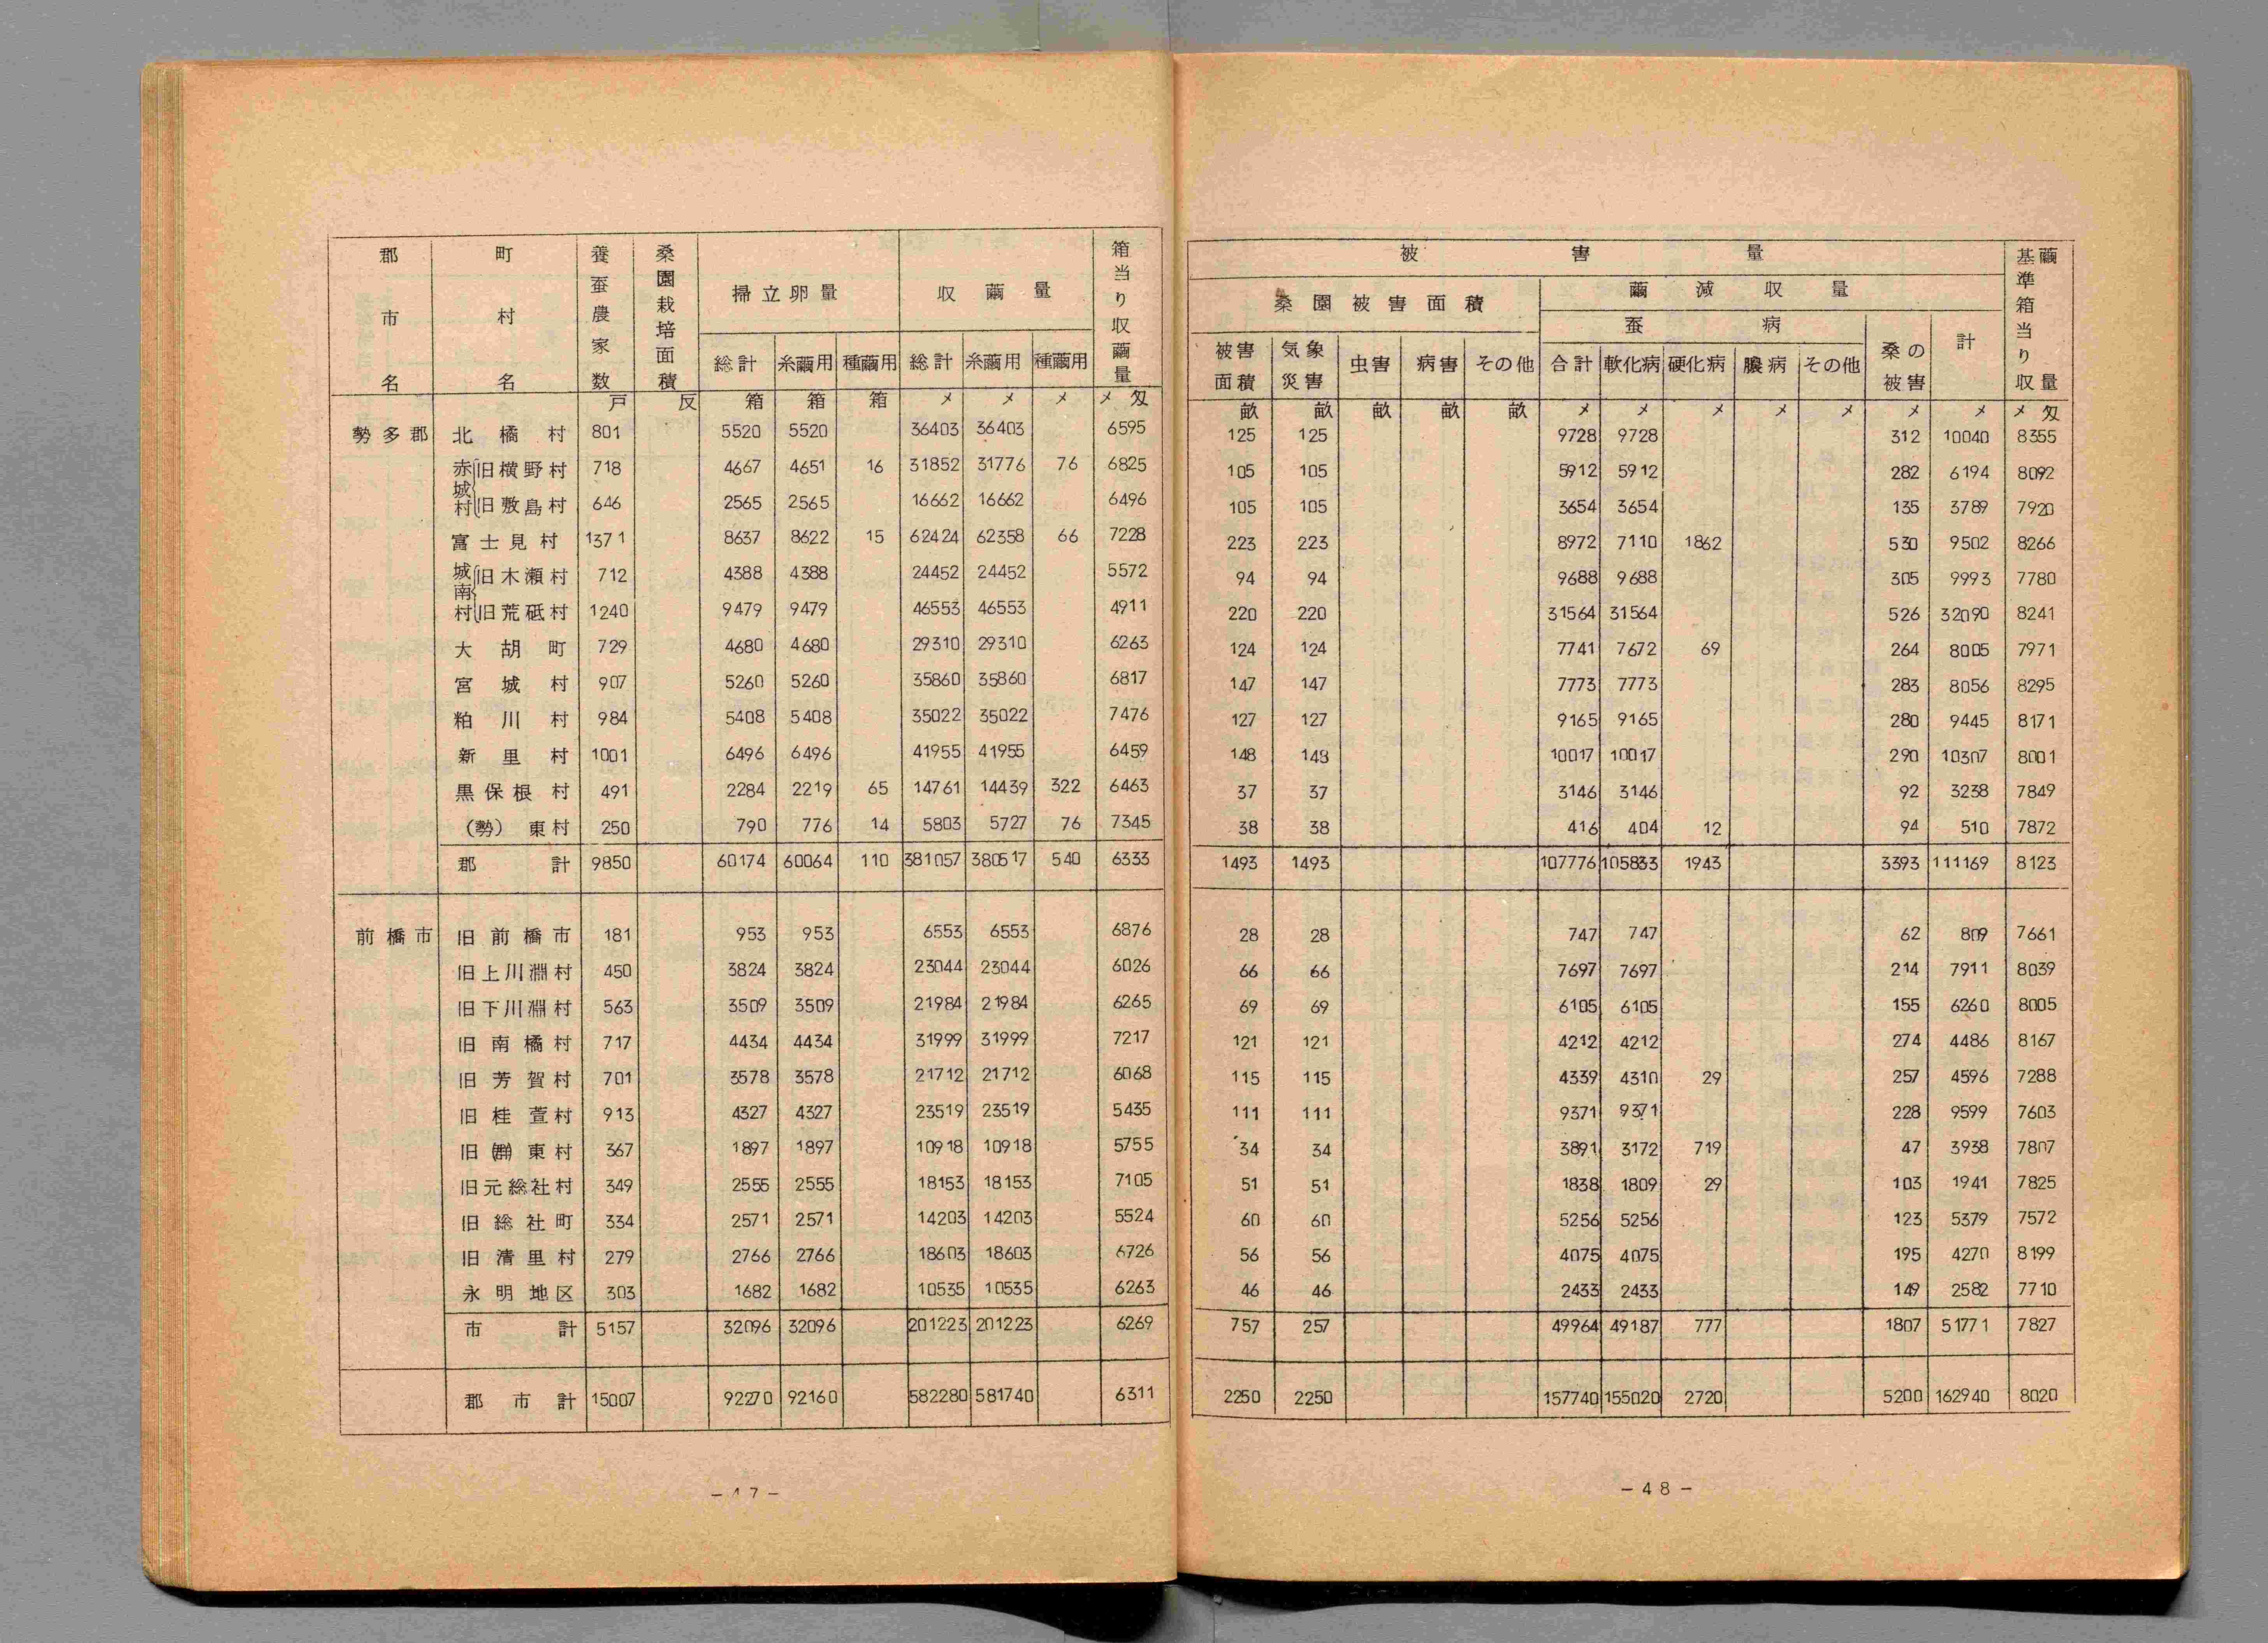 郡市名 町村名 養蚕農家数 桑園栽培面積 掃立卵量 収繭量 箱当り収繭量
総計 糸繭用 種繭用 総計 糸繭用 種繭用
戸 反 箱 箱 箱 メ メ メ メ匁
勢多郡 北橘村 801 5520 5520 36403 36403 6595
赤城村 旧横野村 718 4667 4651 16 31852 31776 76 6825
旧敷島村 646 2565 2565 16662 16662 6496
富士見村 1371 8637 8622 15 62424 62358 66 7228
城南村 旧木瀬村 712 4388 4388 24452 24452 5572
旧荒砥村 1240 9479 9479 46553 46553 4911
大胡町 729 4680 4680 29310 29310 6263
宮城村 907 5260 5260 35860 35860 6817
粕川村 984 5408 5408 35022 35022 7476
新里村 1001 6496 6496 41955 41955 6459
黒保根村 491 2284 2219 65 14761 14439 322 6463
(勢)東村 250 790 776 14 5803 5727 76 7345
郡計 9850 60174 60064 110 381057 380517 540 6333
前橋市 旧前橋市 181 953 953 6553 6553 6876
旧上川淵村 450 3824 3824 23044 23044 6026
旧下川淵村 563 3509 3509 21984 21984 6265
旧南橘村 717 4434 4434 31999 31999 7217
旧芳賀村 701 3578 3578 21712 21712 6068
旧桂萱村 913 4327 4327 23519 23519 5435
旧(群)東村 367 1897 1897 10918 10918 5755
旧元総社村 349 2555 2555 18153 18153 7105
旧総社町 334 2571 2571 14203 14203 5524
旧清里村 279 2766 2766 18603 18603 6726
永明地区 303 1682 1682 10535 10535 6263
市計 5157 32096 32096 201223 201223 6269
郡市計 15007 92270 92160 582280 581740 6311
-47-
被害量 基準箱当り収繭量
桑園被害面積 繭減収量
蚕病 桑の被害 計
被害面積 気象災害 虫害 病害 その他 合計 軟化病 硬化病 膿病 その他
畝 畝 畝 畝 畝 メ メ メ メ メ メ メ メ匁
125 125 9728 9728 312 10040 8355
105 105 5912 5912 282 6194 8092
105 105 3654 3654 135 3789 7920
223 223 8972 7110 1862 530 9502 8266
94 94 9688 9688 305 9993 7780
220 220 31564 31564 526 32090 8241
124 124 7741 7672 69 264 8005 7971
147 147 7773 7773 283 8056 8295
127 127 9165 9165 280 9445 8171
148 148 10017 10017 290 10307 8001
37 37 3146 3146 92 3238 7849
38 38 416 404 12 94 510 7872
1493 1493 107776 105833 1943 3393 111169 8123
28 28 747 747 62 809 7661
66 66 7697 7697 214 7911 8039
69 69 6105 6105 155 6260 8005
121 121 4212 4212 274 4486 8167
115 115 4339 4310 29 257 4596 7288
111 111 9371 9371 228 9599 7603
34 34 3891 3172 719 47 3938 7807
51 51 1838 1809 29 103 1941 7825
60 60 5256 5256 123 5379 7572
56 56 4075 4075 195 4270 8199
46 46 2433 2433 149 2582 7710
757 257 49964 49187 777 1807 51771 7827
2250 2250 157740 155020 2720 5200 162940 8020
-48-